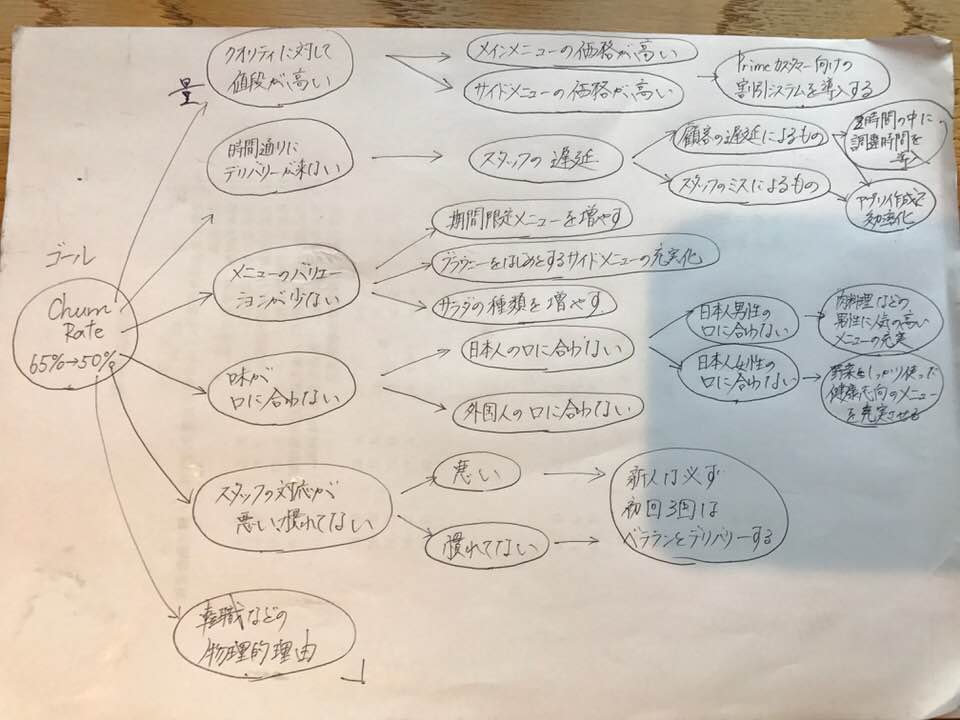 クオリティに対して
値段が高い
量
メインメニューの価格が高い
サイドメニューの価格が高い
Primeカスタマー向けの
割引システムを導入する
時間通りに
デリバリーが来ない
スタッフの遅延
顧客の遅延によるもの
スタッフのミスによるもの
時間の中に
調整時間を
アプリ作成で
効率化
メニューのバリエー
ションが少ない
期間限定メニューを増やす
ブラウニーをはじめとするサイドメニューの充実化
サラダの種類を増やす
ゴール
Churn
Rate
65%→50%
味が
口に合わない
日本人の口に合わない
外国人の口に合わない
日本人男性の
口に合わない
日本人女性の
口に合わない
肉料理などの
男性に人気の高い
メニューの充実
野菜をしっかり使った
健康志向のメニュー
を充実させる
スタッフの対応が
悪い、慣れてない
悪い
慣れてない
新人は必ず
初回3回は
ベテランとデリバリーする
転職などの
物理的理由